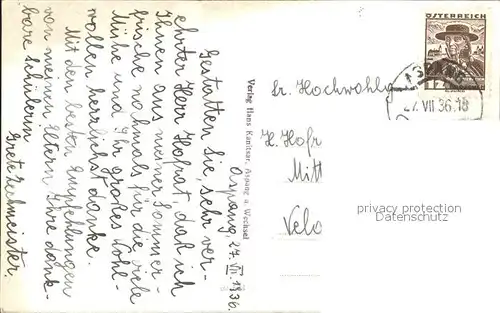 Aspang, 27. VII. 1936.
Gestatten Sie, sehr ver-
ehrter Herr Hofrat, daß ich
Ihnen aus meiner Sommer-
frische nochmals für die viele
Mühe und Ihr großes Wohl-
wollen herzlichst danke.
Mit den besten Empfehlungen
von meinen Eltern Ihre dank-
bare Schülerin
Grete Zechmeister.
Verlag Hans Kanitsar, Aspang a. Wechsel
ÖSTERREICH
12
ASPANG
27. VII 36. 18
Sr. Hochwohlg
H. Hofr
Mitt
Velo
privacy protection
Datenschutz